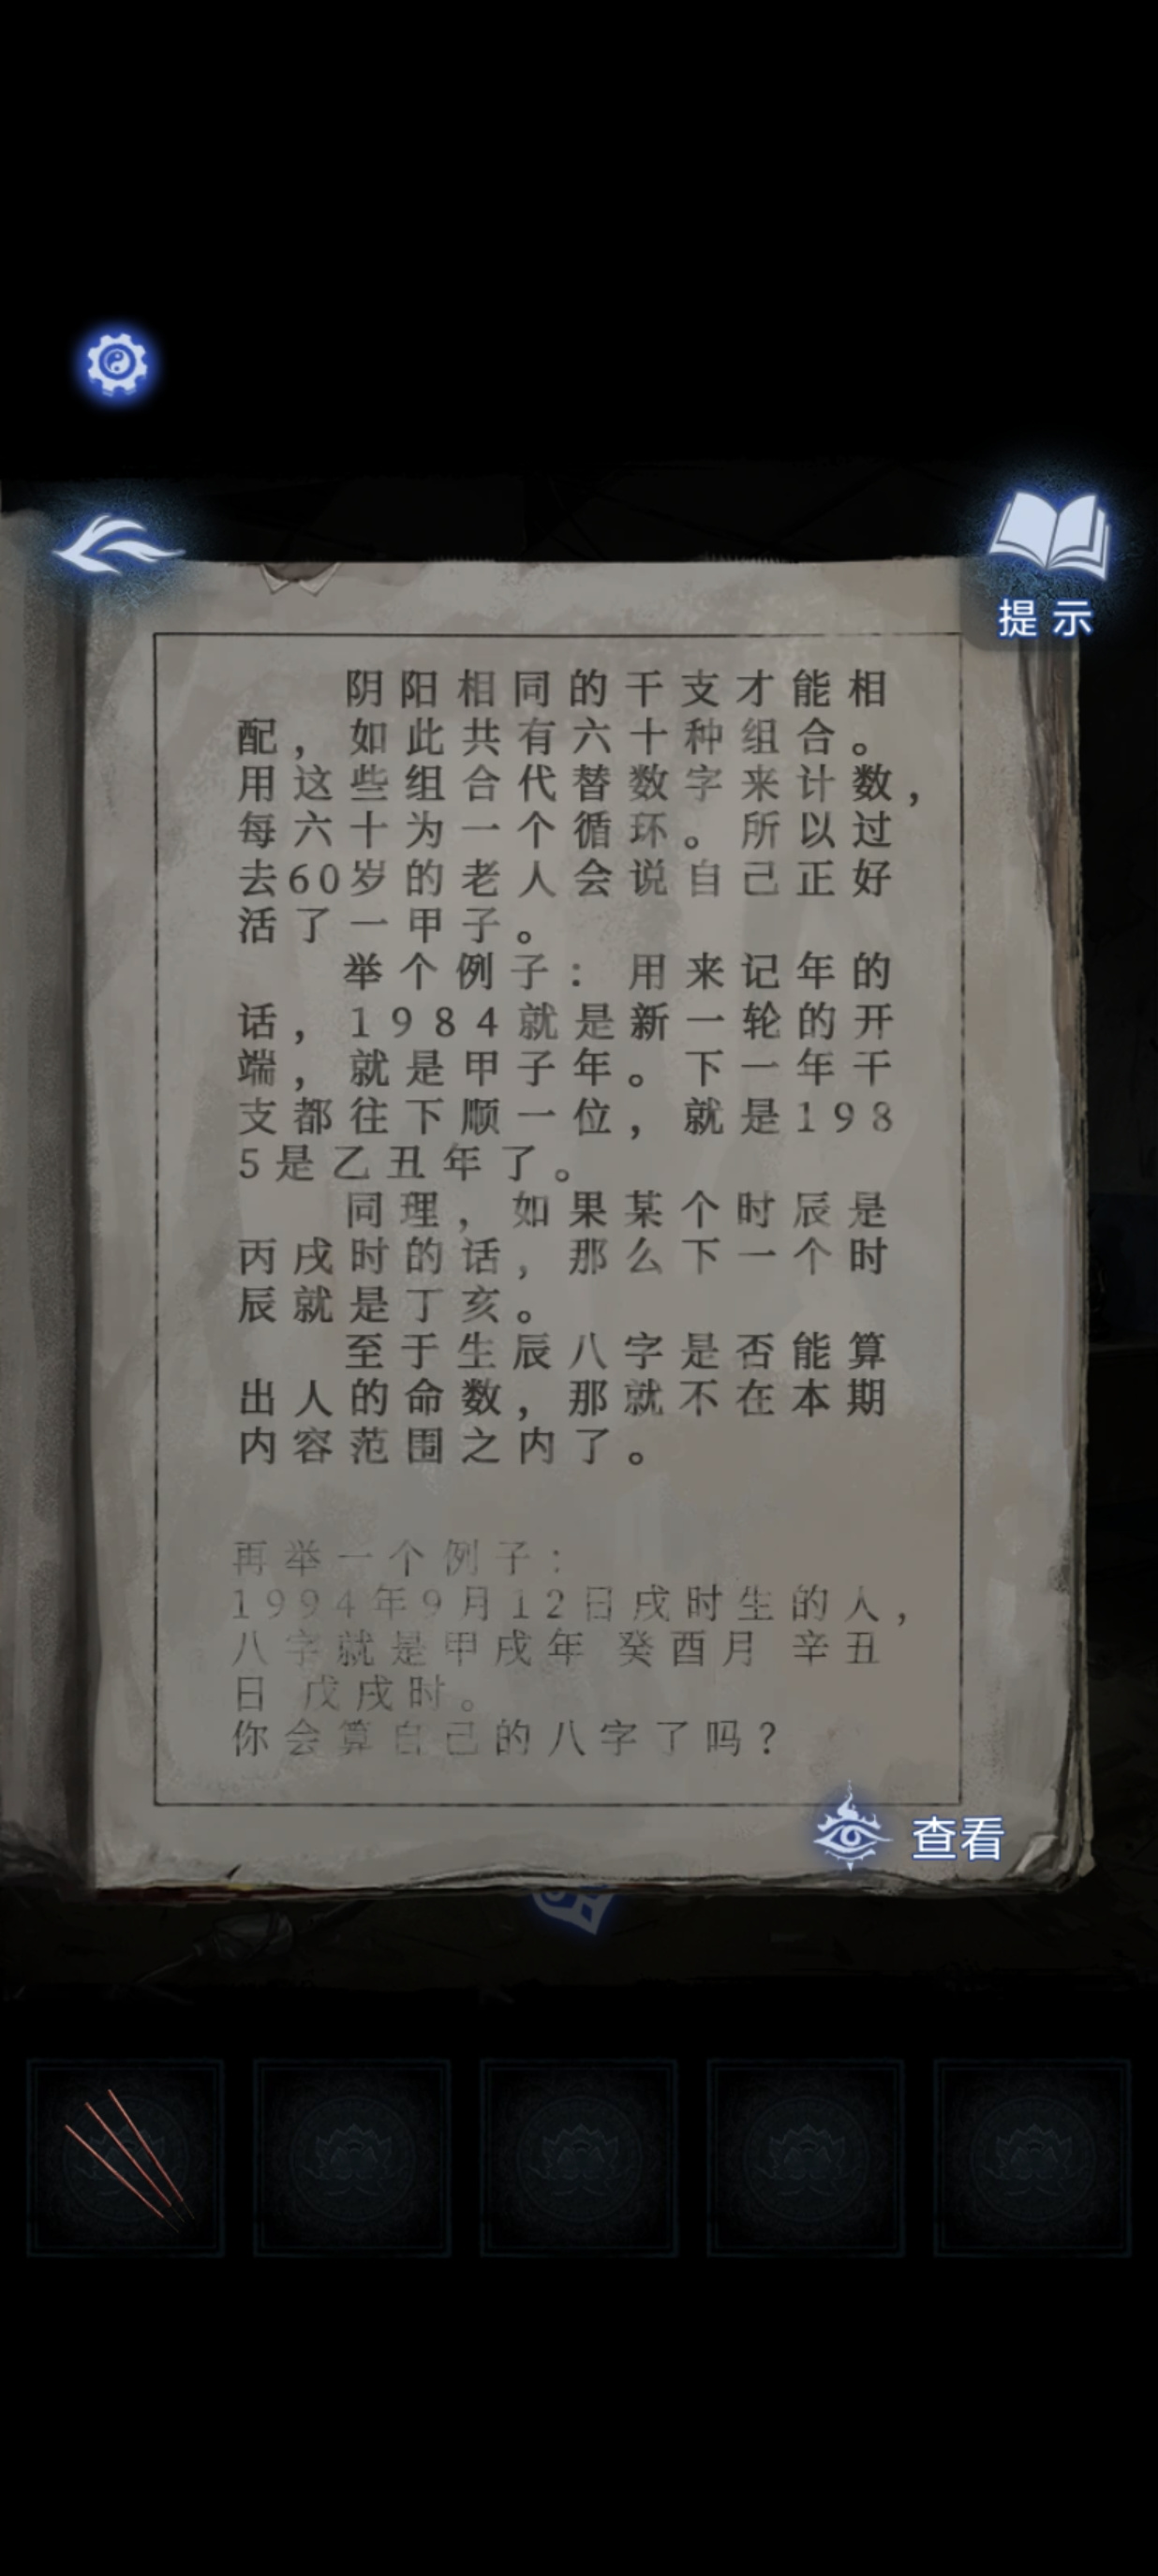 提示
阴阳相同的干支才能相
配，如此共有六十种组合。
用这些组合代替数字来计数，
每六十为一个循环。所以过
去60岁的老人会说自己正好
活了一甲子。
举个例子：用来记年的
话，1984就是新一轮的开
端，就是甲子年。下一年干
支都往下顺一位，就是198
5是乙丑年了。
同理，如果某个时辰是
丙戌时的话，那么下一个时
辰就是丁亥。
至于生辰八字是否能算
出人的命数，那就不在本期
内容范围之内了。
再举一个例子：
1994年9月12日戌时生的人，
八字就是甲戌年 癸酉月 辛丑
日 戊戌时。
你会算自己的八字了吗？
查看